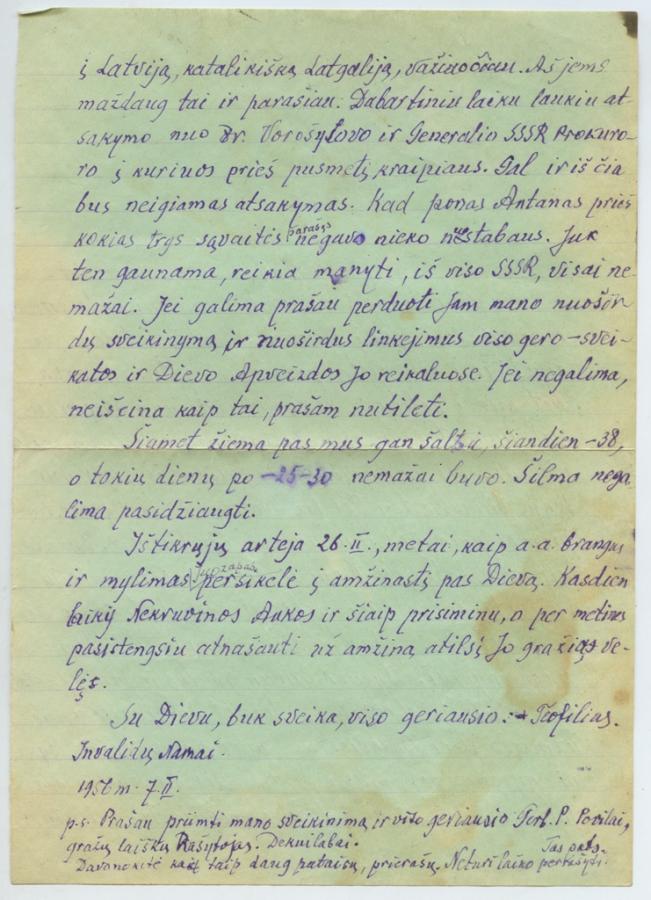 į Latviją, katalikišką Latgaliją, važinočiau. Aš jems
maždaug tai ir parašiau. Dabartiniu laiku laukiu at-
sakymo nuo Dr. Vorošylovo ir Generalio SSSR Prokuro-
ro į kuriuos prieš pusmetį kraipiaus. Gal ir iš čia
bus neigiamas atsakymas. Kad ponas Antanas prieš
kokias trys sąvaitės parašęs negavo nieko nuostabaus. Juk
ten gaunama, reikia manyti, iš viso SSSR, visai ne-
mažai. Jei galima prašau perduoti Jam mano nuošir-
dų sveikinymą ir nuoširdus linkejimus viso gero – svei-
katos ir Dievo Apveizdos Jo reikaluose. Jei negalima,
neišeina kaip tai, prašam nutileti.
Šiamet žiema pas mus gan šalta, šiandien -38,
o tokių dienų po -25-30 nemažai buvo. Šilma nega
lima pasidžiaugti.
Ištikrųjų arteja 26.II., metai, kaip a.a. brangus
ir mylimas Juozapas persikelė į amžinastį pas Dievą. Kasdien
laikų Nekruvinos Aukos ir šiaip prisiminu, o per metines
pasistengsiu atnašauti už amžiną atilsį Jo gražios ve-
lęs.
Su Dievu, buk sveika, viso geriausio. Teofilias.
Invalidų Namai.
1956 m. 7.II.
p.s. Prašau priimti mano sveikinimą ir viso geriausio Gerb. P. Povilai,
gražų laiškų Rašytojai. Dekuilabai. Tas pats.
Dovanokitė kad taip daug pataisų, prierašų. Neturi laiko perrašyti.